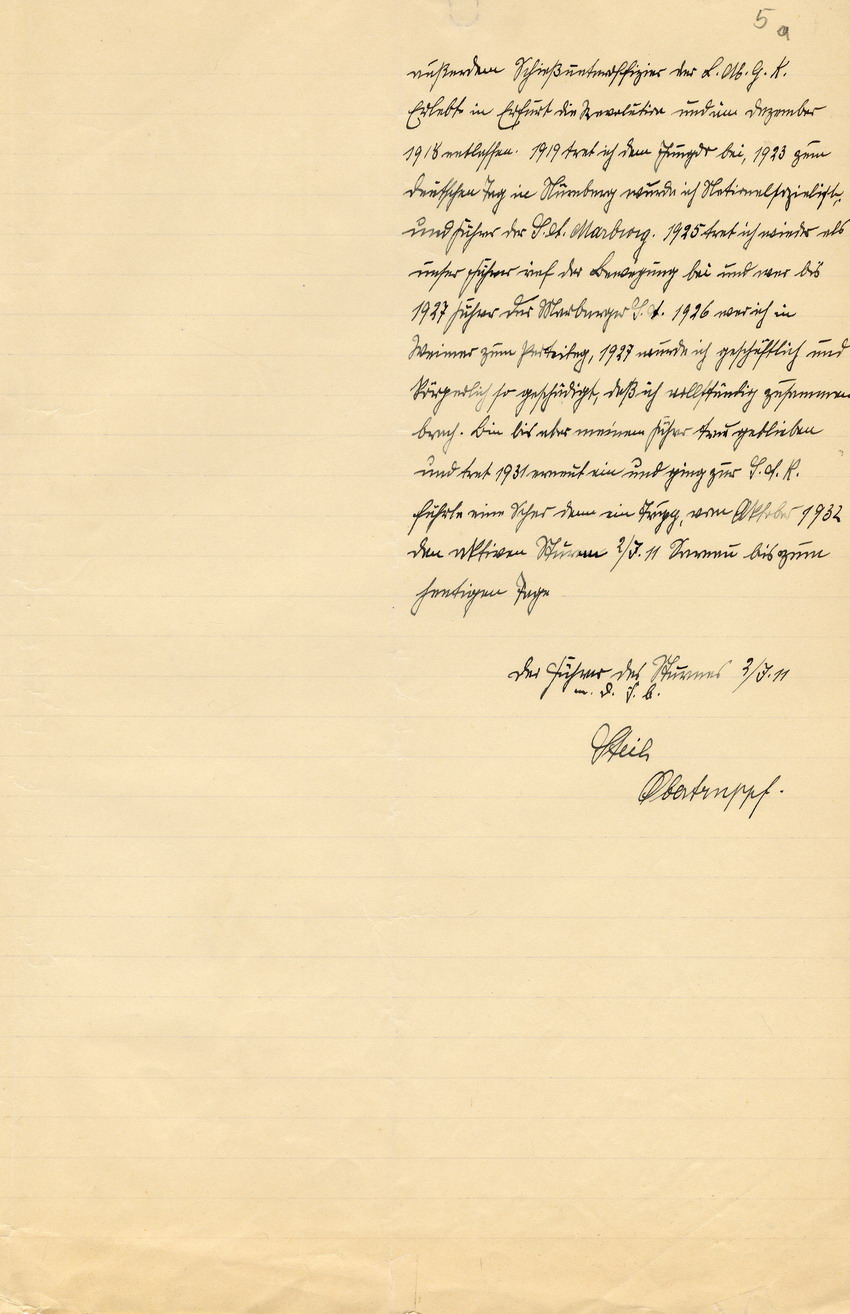 5a
außerdem Schießunteroffizier der L. M. G. K.
Erlebte in Erfurt die Revolution und im Dezember
1918 entlassen. 1919 trat ich dem Jungdo bei, 1923 zum
Deutschen Tag in Nürnberg wurde ich Nationalsozialist,
und Führer der S.A. Marburg. 1925 trat ich wieder als
unser Führer rief der Bewegung bei und war bis
1927 Führer der Marburger S.A. 1926 war ich in
Weimar zum Parteitag, 1927 wurde ich geschäftlich und
körperlich so geschädigt, daß ich vollständig zusammen
brach. Bin bis aber meinem Führer treu geblieben
und trat 1931 erneut ein und ging zur S.A.R.
führte eine Schar dann ein Trupp, vom Oktober 1932
den aktiven Sturm 2/J. 11 Sarnau bis zum
heutigen Tage
Der Führer des Sturmes 2/J. 11
m. d. F. b.
Obertruppf.